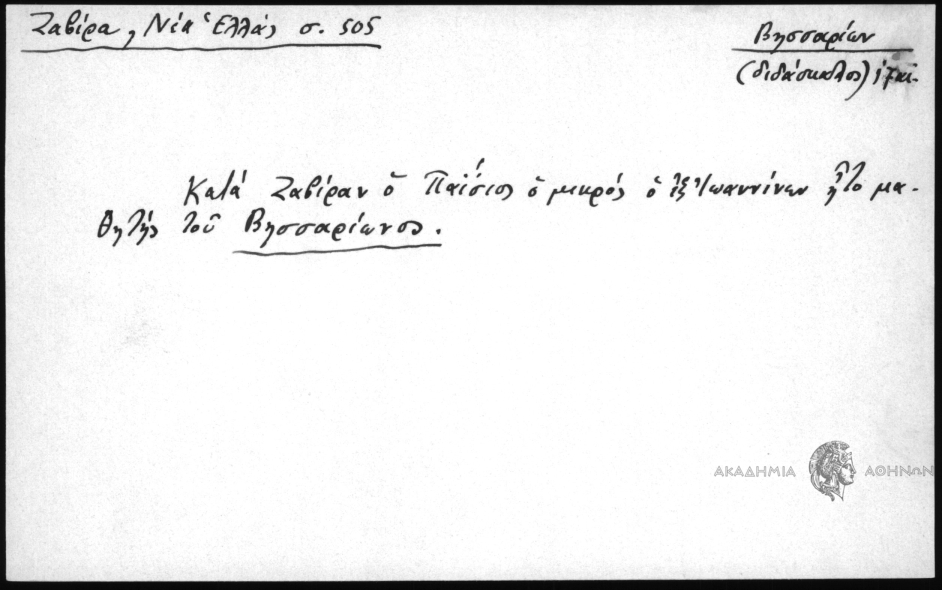 Ζαβίρα, Νέα Ἑλλάς σ. 505
Βησσαρίων
(διδάσκαλος) 17 αι.
Κατά Ζαβίραν ὁ Παΐσιος ὁ μικρός ὁ ἐξ Ἰωαννίνων ἦτο μα-
θητής τοῦ Βησσαρίωνος.
ΑΚΑΔΗΜΙΑ ΑΘΗΝΩΝ